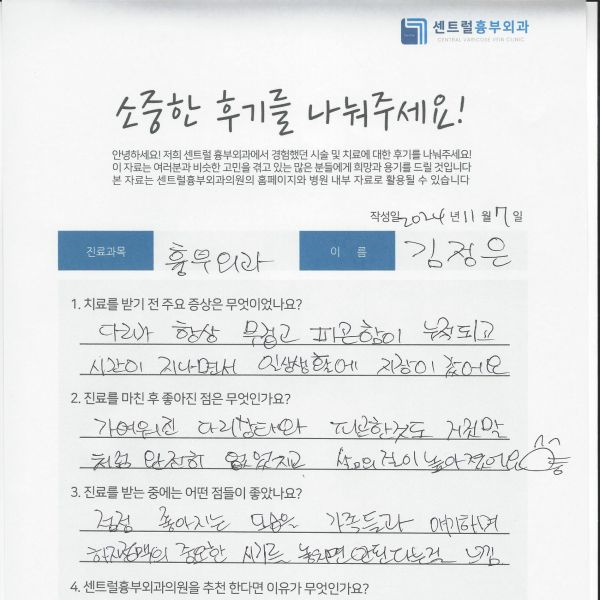 센트럴흉부외과
CENTRAL VARICOSE VEIN CLINIC
소중한 후기를 나눠주세요!
안녕하세요! 저희 센트럴 흉부외과에서 경험했던 시술 및 치료에 대한 후기를 나눠주세요!
이 자료는 여러분과 비슷한 고민을 겪고 있는 많은 분들에게 희망과 용기를 드릴 것입니다
본 자료는 센트럴흉부외과의원의 홈페이지와 병원 내부 자료로 활용될 수 있습니다
작성일 2024 년 11 월 7 일
진료과목 흉부외과 이 름 김정은
1. 치료를 받기 전 주요 증상은 무엇이었나요?
다리가 항상 무겁고 피곤함이 누적되고
시간이 지나면서 일상생활에 지장이 갔어요
2. 진료를 마친 후 좋아진 점은 무엇인가요?
가벼워진 다리상태와 피곤한것도 거짓말
처럼 완전히 없었지고 삶의 질이 높아졌어요
3. 진료를 받는 중에는 어떤 점들이 좋았나요?
점점 좋아지는 모습을 가족들과 얘기하며
하지정맥의 중요한 시기를 놓치면 안된다는걸 느낌.
4. 센트럴흉부외과의원을 추천 한다면 이유가 무엇인가요?